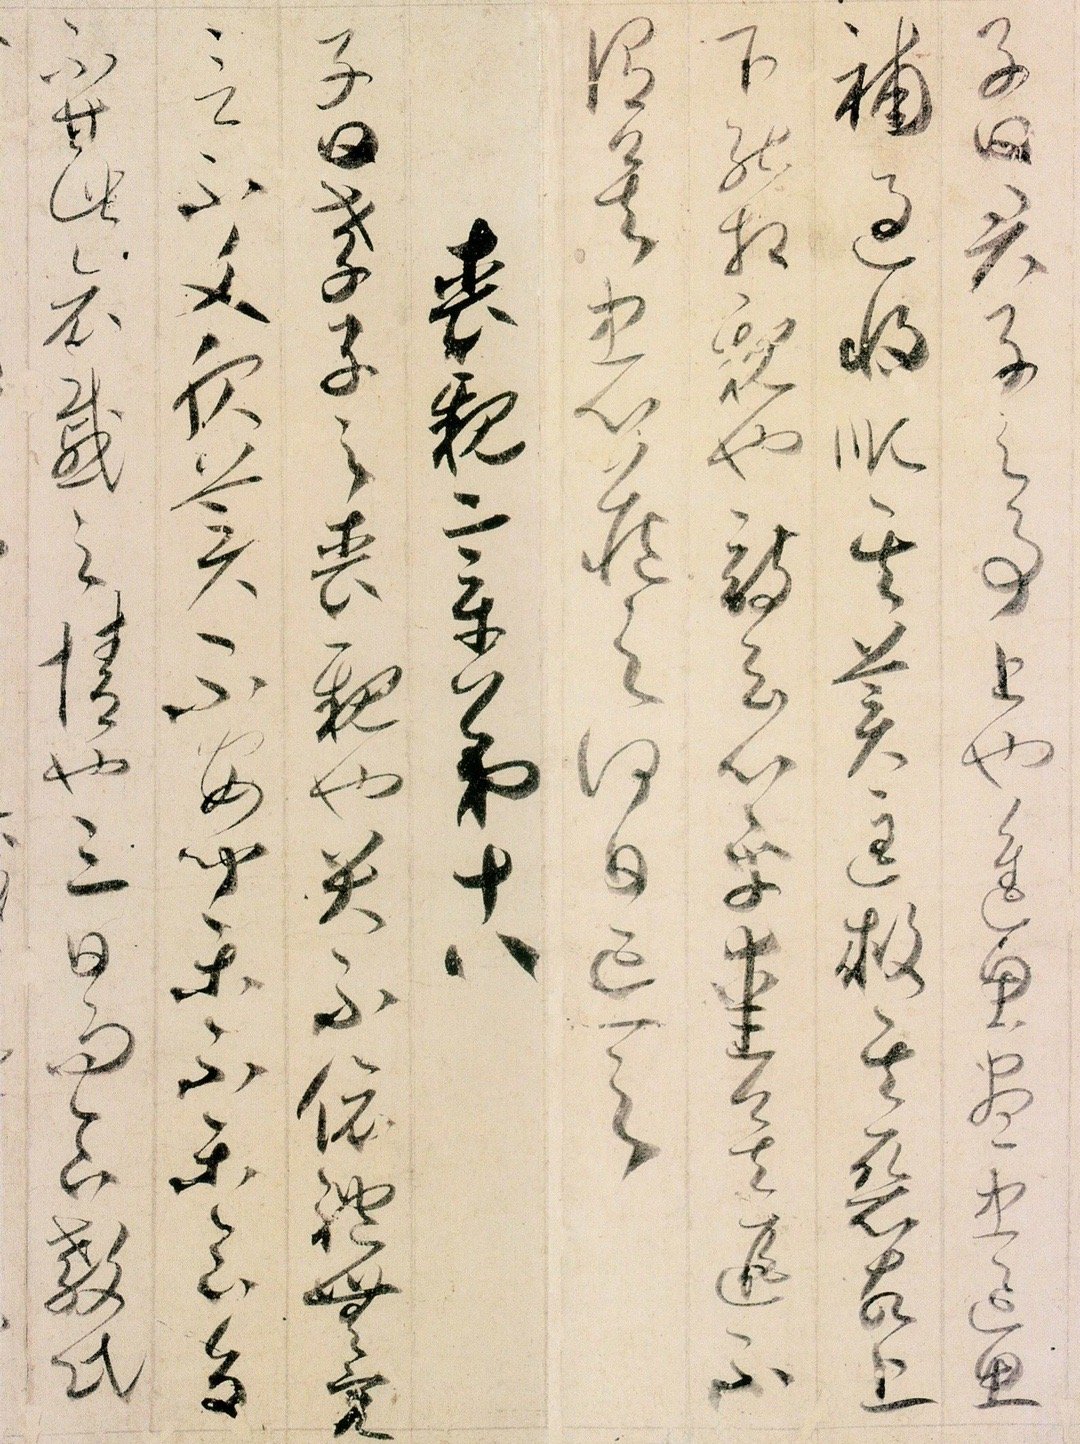 子曰君子之事上也進思盡忠退思
補過將順其美匡救其惡故上
下能相親也詩云心乎愛矣遐不
謂矣忠心藏之何日忘之
喪親章第十八
子曰孝子之喪親也哭不依禮無容
言不文服美不安聞樂不樂食旨
不甘此哀慼之情也三日而食教民